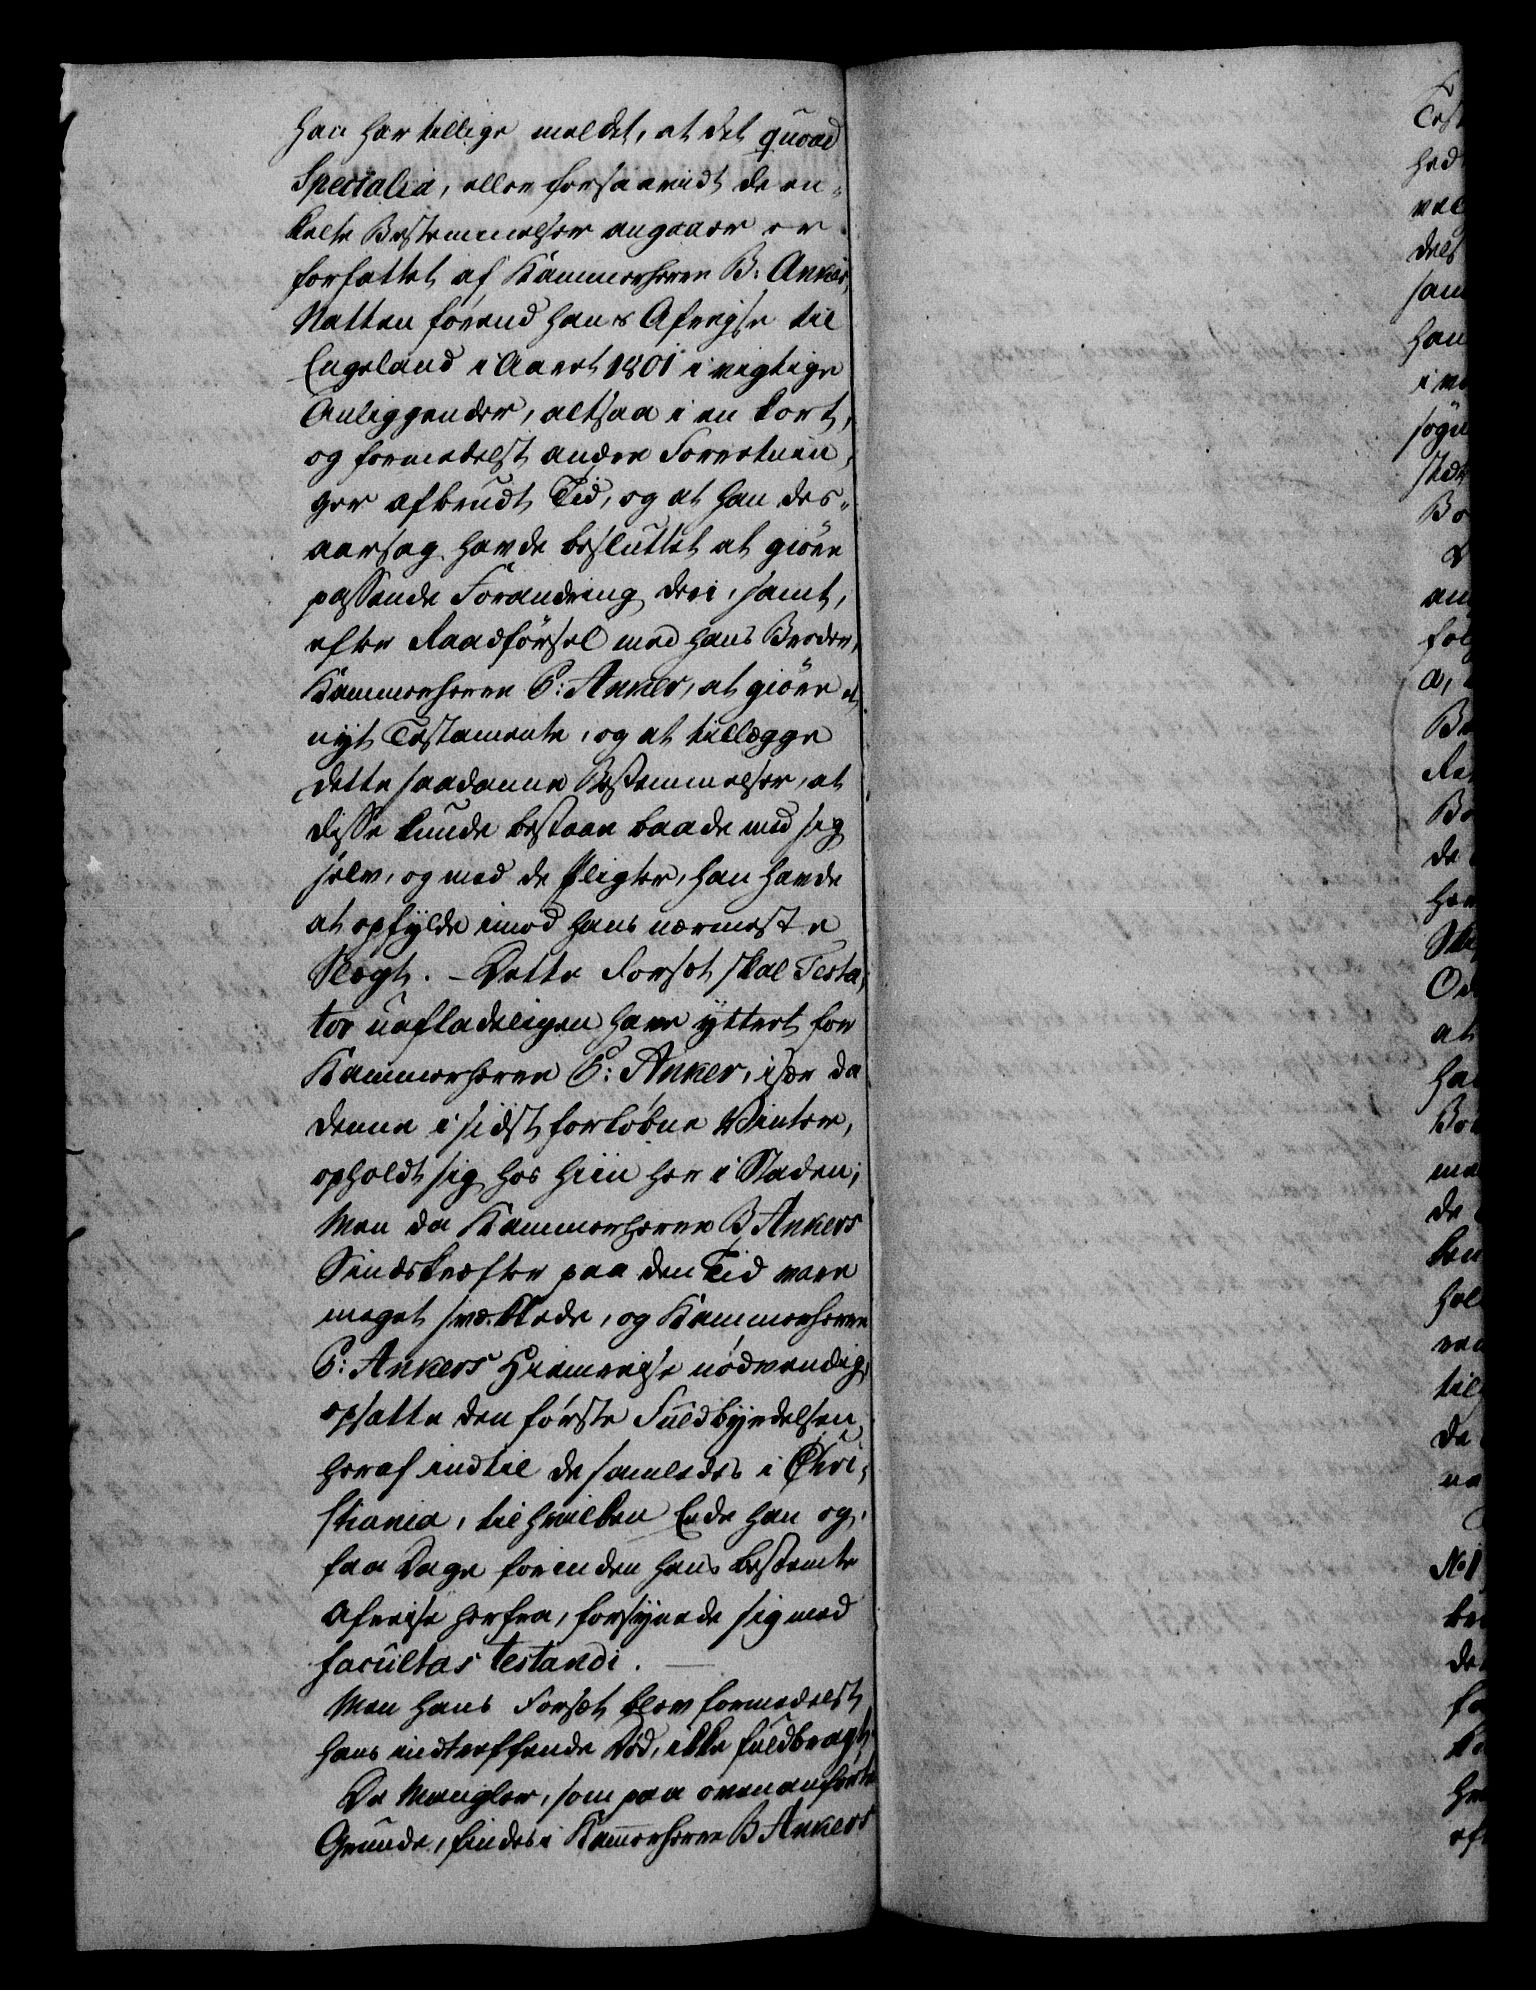 Han har tillige meldet, at det quoad
Specialia, eller forsaavidt de en-
kelte Bestemmelser angaaer er
forfattet af Kammerherre B: Anker,
Natten førend hans Afreyse til
Engeland i Aaret 1801 i vigtige
Anliggender, altsaa i en kort,
og formedelst andre Forretnin-
ger afbrudt Tid, og at han des-
aarsag havde besluttet at giøre
passende Forandring deri, samt,
efter Raadførsel med hans Broder,
Kammerherre P: Anker, at giøre et
nyt Testamente, og at tillægge
dette saadanne Bestemmelser, at
disse kunde bestaae baade med sig
selv, og med de Pligter, han havde
at opfylde imod hans nærmeste
Slægt. – Dette Forsæt skal Testa-
tor uafladeligen have yttert for
Kammerherre P: Anker, især da
denne i sidst forløbne Vinter,
opholdt sig hos hiin her i Staden;
Men da Kammerherre B Ankers
Sindskræfter paa den Tid vare
meget svækkede, og Kammerherre
P: Ankers Hiemreise nødvendig,
opsatte den første Fuldbyrdelsen
heraf indtil de samledes i Chri-
stiania, til hvilken Ende han og,
faa Dage forinden hans bestemte
Afreise herfra, forsynede sig med
facultas testandi. —
Men hans Forsæt blev formedelst
hans indtreffende Død, ikke fuldbragt.
De Mangler, som paa ovenanførte
Grunde, findes i Kammerherre B Ankers
Test
hed
vel
dels
sam
han
søgn
Bo
an
føl
a,
de
Sk
at
ha
ma
de
hol
til
de
No 1
de